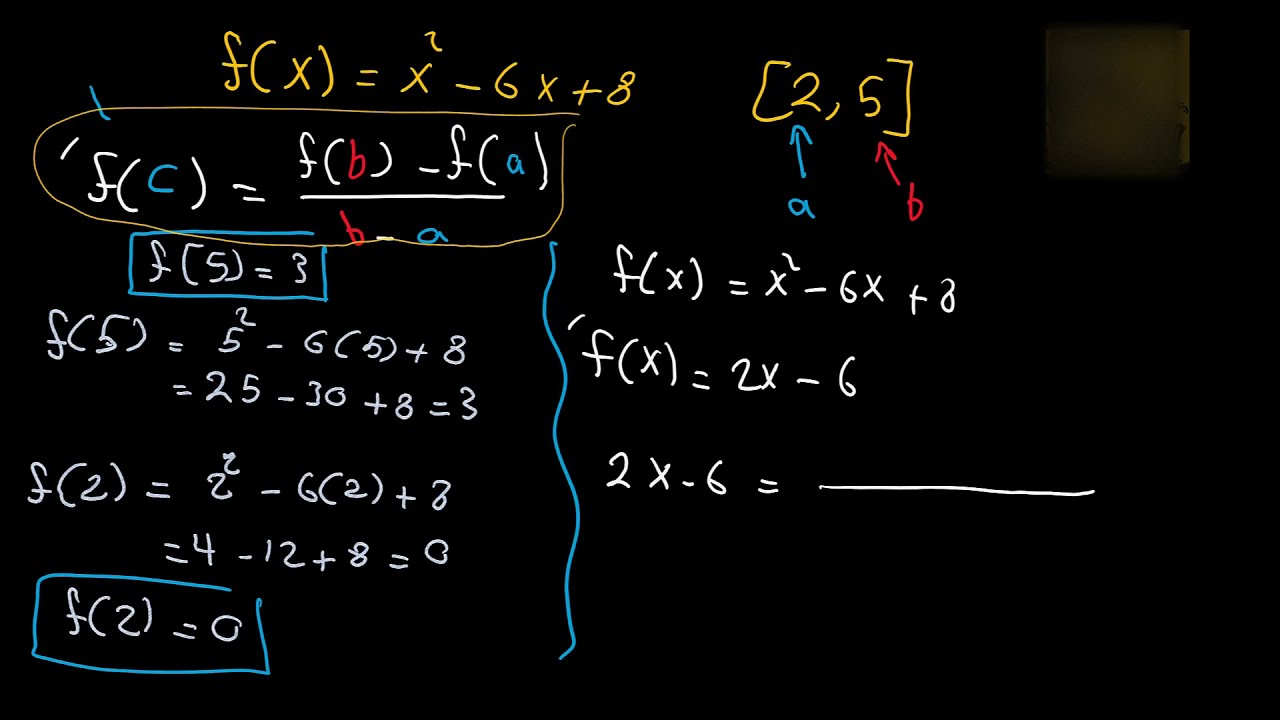 f(x) = x² - 6x + 8
[2, 5]
a b
'f(c) = f(b) - f(a) / b - a
f(5) = 3
f(5) = 5² - 6(5) + 8
= 25 - 30 + 8 = 3
f(2) = 2² - 6(2) + 8
= 4 - 12 + 8 = 0
f(2) = 0
f(x) = x² - 6x + 8
'f(x) = 2x - 6
2x - 6 =